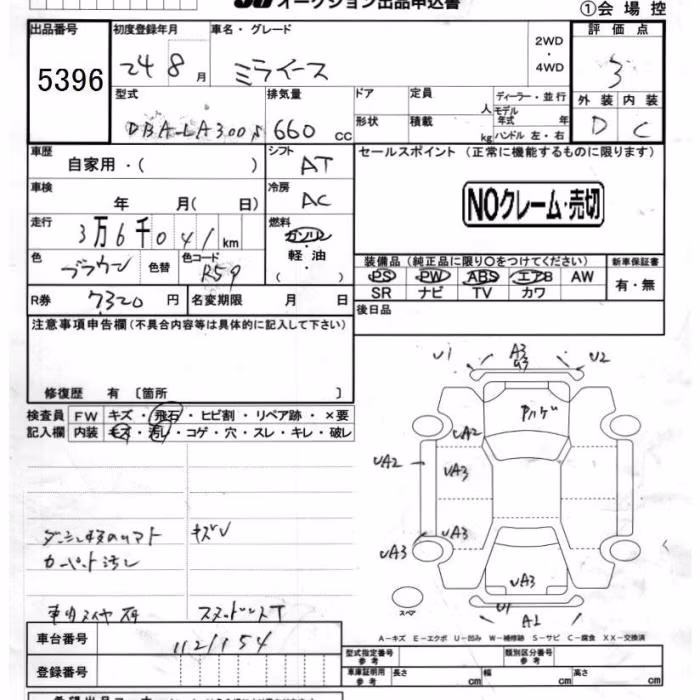 オークション出品申込書
①会場控
出品番号 初度登録年月 車名・グレード 2WD・4WD 評価点
5396 24 8月 ミライース 3
型式 排気量 ドア 定員 人 ディーラー・並行 外装 内装
DBA-LA300S 660cc 形状 積載 kg モデル年式 年 ハンドル 左・右 D C
車歴 シフト セールスポイント (正常に機能するものに限ります)
自家用・( ) AT
車検 冷房
年 月( 日) AC
NOクレーム・売切
走行 燃料
3万6千041km ガソリン・軽油
( )
色 色替 色コード 装備品(純正品に限り○をつけてください) 新車保証書
ブラウン R59 PS PW ABS エアB AW 有・無
SR ナビ TV カワ
R券 7320円 名変期限 月 日 後日品
注意事項申告欄(不具合内容等は具体的に記入して下さい)
修復歴 有 〔箇所 〕
検査員 FW キズ・飛石・ヒビ割・リペア跡・×要
記入欄 内装 キズ・汚レ・コゲ・穴・スレ・キレ・破レ
U1 A3 U3 U2
UA2
UA2 UA3
UA3 UA3
UA3
U1
A2
キズU
カーペット汚レ
スペア
A-キズ E-エクボ U-凹み W-補修跡 S-サビ C-腐食 XX-交換済
車台番号 1121154
登録番号
型式指定番号 参考 類別区分番号 参考
車庫証明用 参考 長さ cm 幅 cm 高さ cm